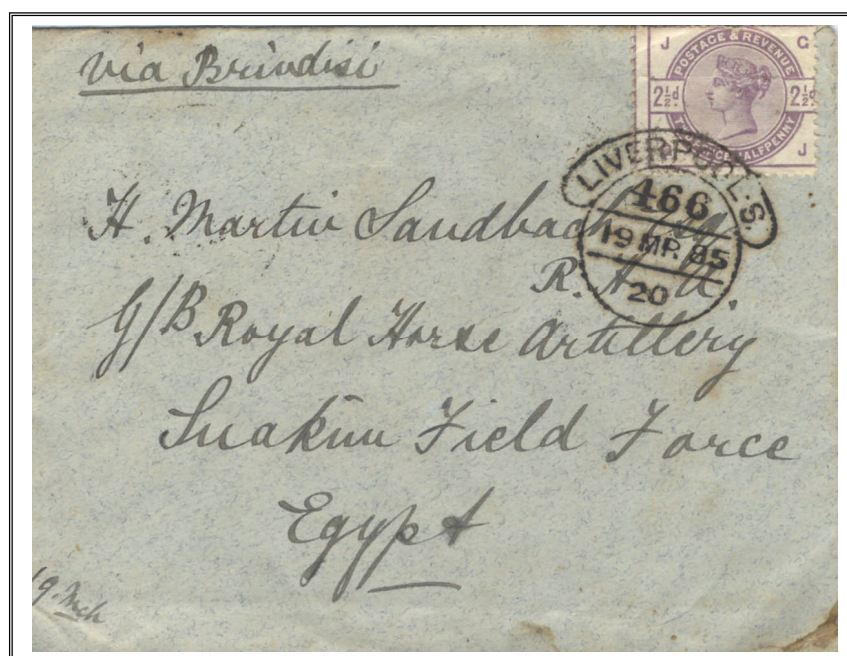 via Brindisi
J G
POSTAGE & REVENUE
2½d. 2½d.
HALFPENNY
J
LIVERPOOL.S.
466
19 MR. 85
20
H. Martin Sandbach Esq
R. H. A.
G/B Royal Horse Artillery
Suakim Field Force
Egypt
19. Mch